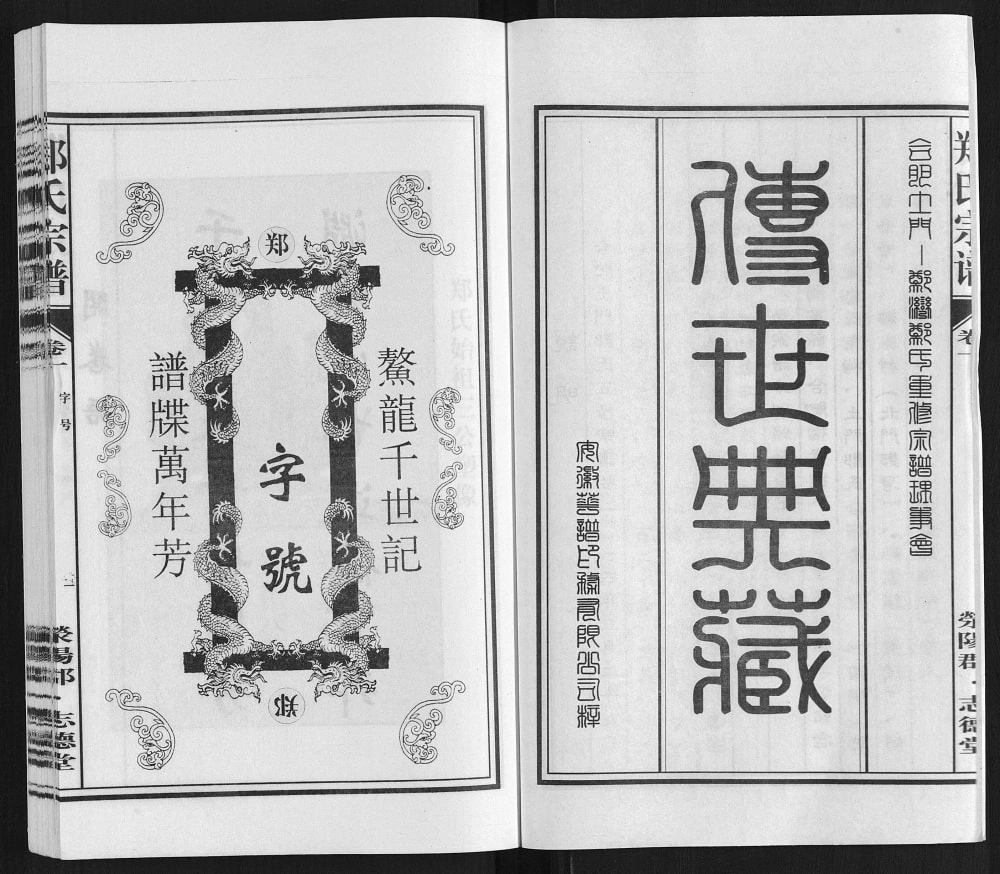 郑氏宗谱
卷一
滎陽郡·志德堂
合肥土門—鄭灣鄭氏重修宗譜理事會
傳世典藏
安徽華譜印務有限公司梓
鰲龍千世記
郑
字號
郑
譜牒萬年芳
郑氏宗谱
卷一
字号
滎陽郡·志德堂